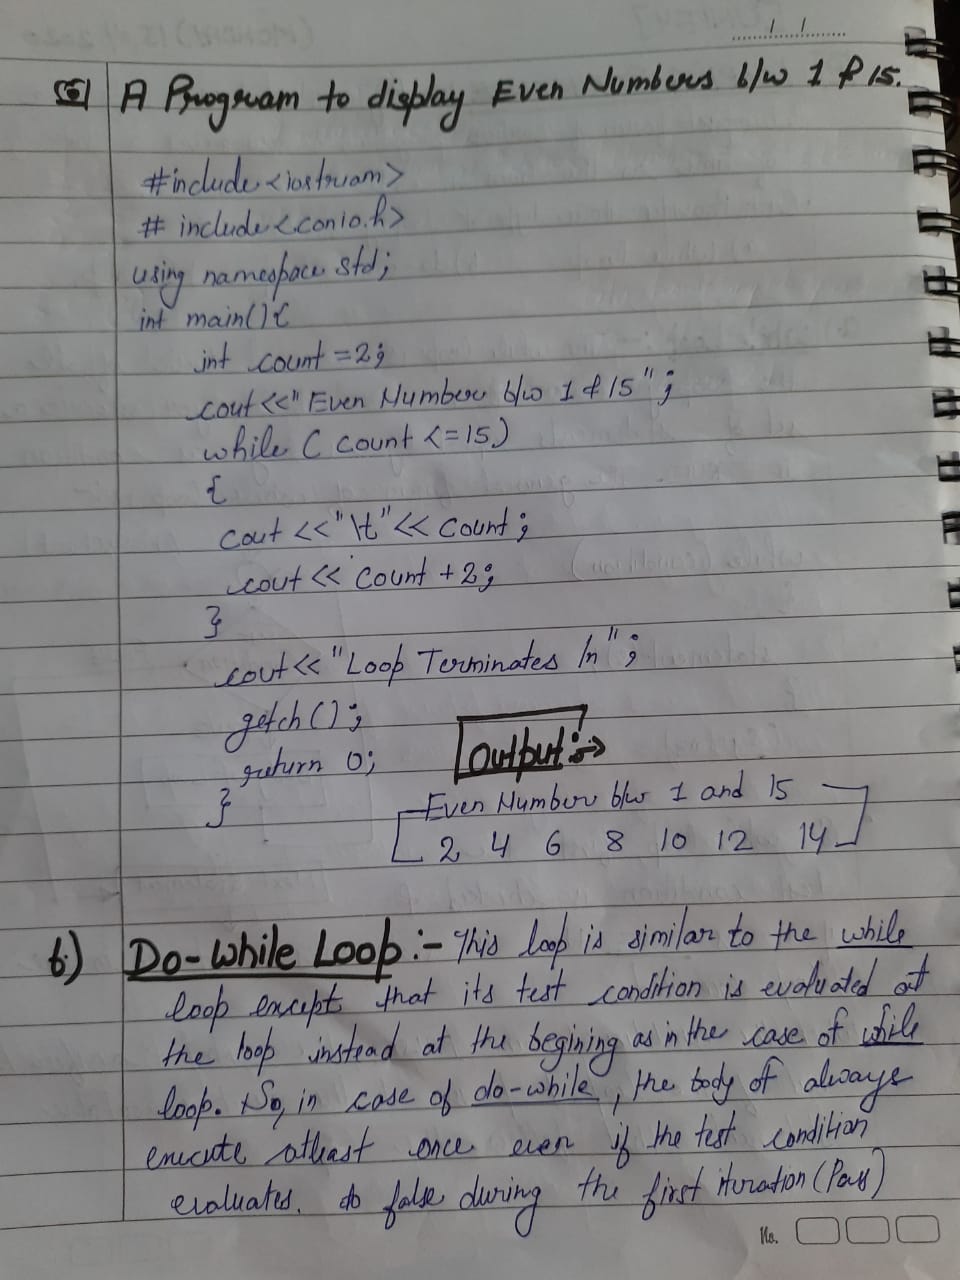 Q) A Program to display Even Numbers b/w 1 & 15.
#include <iostream>
# include <conio.h>
using namespace std;
int main(){
int count = 2;
cout << "Even Number b/w 1 & 15";
while ( count <= 15)
{
cout << "\t" << count;
cout << count + 2;
}
cout << "Loop Terminates /n";
getch();
return 0;
}
Output:→
Even Number b/w 1 and 15
2 4 6 8 10 12 14
b) Do-While Loop:- This loop is similar to the while
loop except that its test condition is evaluated at
the loop instead at the begining as in the case of while
loop. So, in case of do-while, the body of always
execute atleast once even if the test condition
evaluates. to false during the first iteration (Pass)
No.